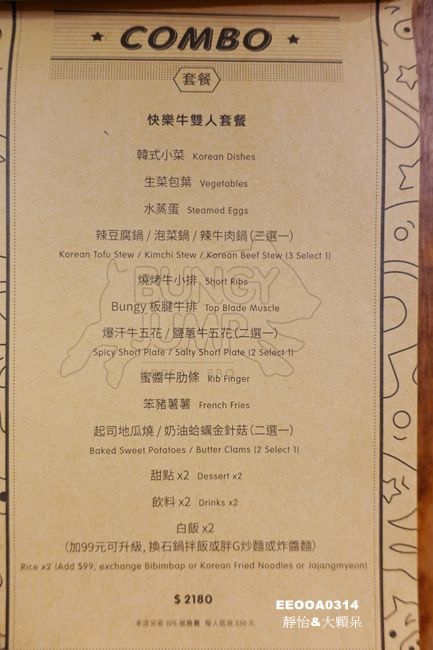 COMBO
套餐
快樂牛雙人套餐
韓式小菜 Korean Dishes
生菜包葉 Vegetables
水蒸蛋 Steamed Eggs
辣豆腐鍋 / 泡菜鍋 / 辣牛肉鍋(三選一)
Korean Tofu Stew / Kimchi Stew / Korean Beef Stew (3 Select 1)
燒烤牛小排 Short Ribs
Bungy 板腱牛排 Top Blade Muscle
爆汗牛五花 / 鹽蔥牛五花(二選一)
Spicy Short Plate / Salty Short Plate (2 Select 1)
蜜醬牛肋條 Rib Finger
笨豬薯薯 French Fries
起司地瓜燒 / 奶油蛤蠣金針菇(二選一)
Baked Sweet Potatoes / Butter Clams (2 Select 1)
甜點 x2 Dessert x2
飲料 x2 Drinks x2
白飯 x2
(加99元可升級, 換石鍋拌飯或胖G炒麵或炸醬麵)
Rice x2 (Add $99, exchange Bibimbap or Korean Fried Noodles or Jajangmyeon)
$ 2180
本店另收 10% 服務費 每人低消 350 元
BUNGY
JUMP
BBQ
EEOOA0314
靜怡&大顆呆